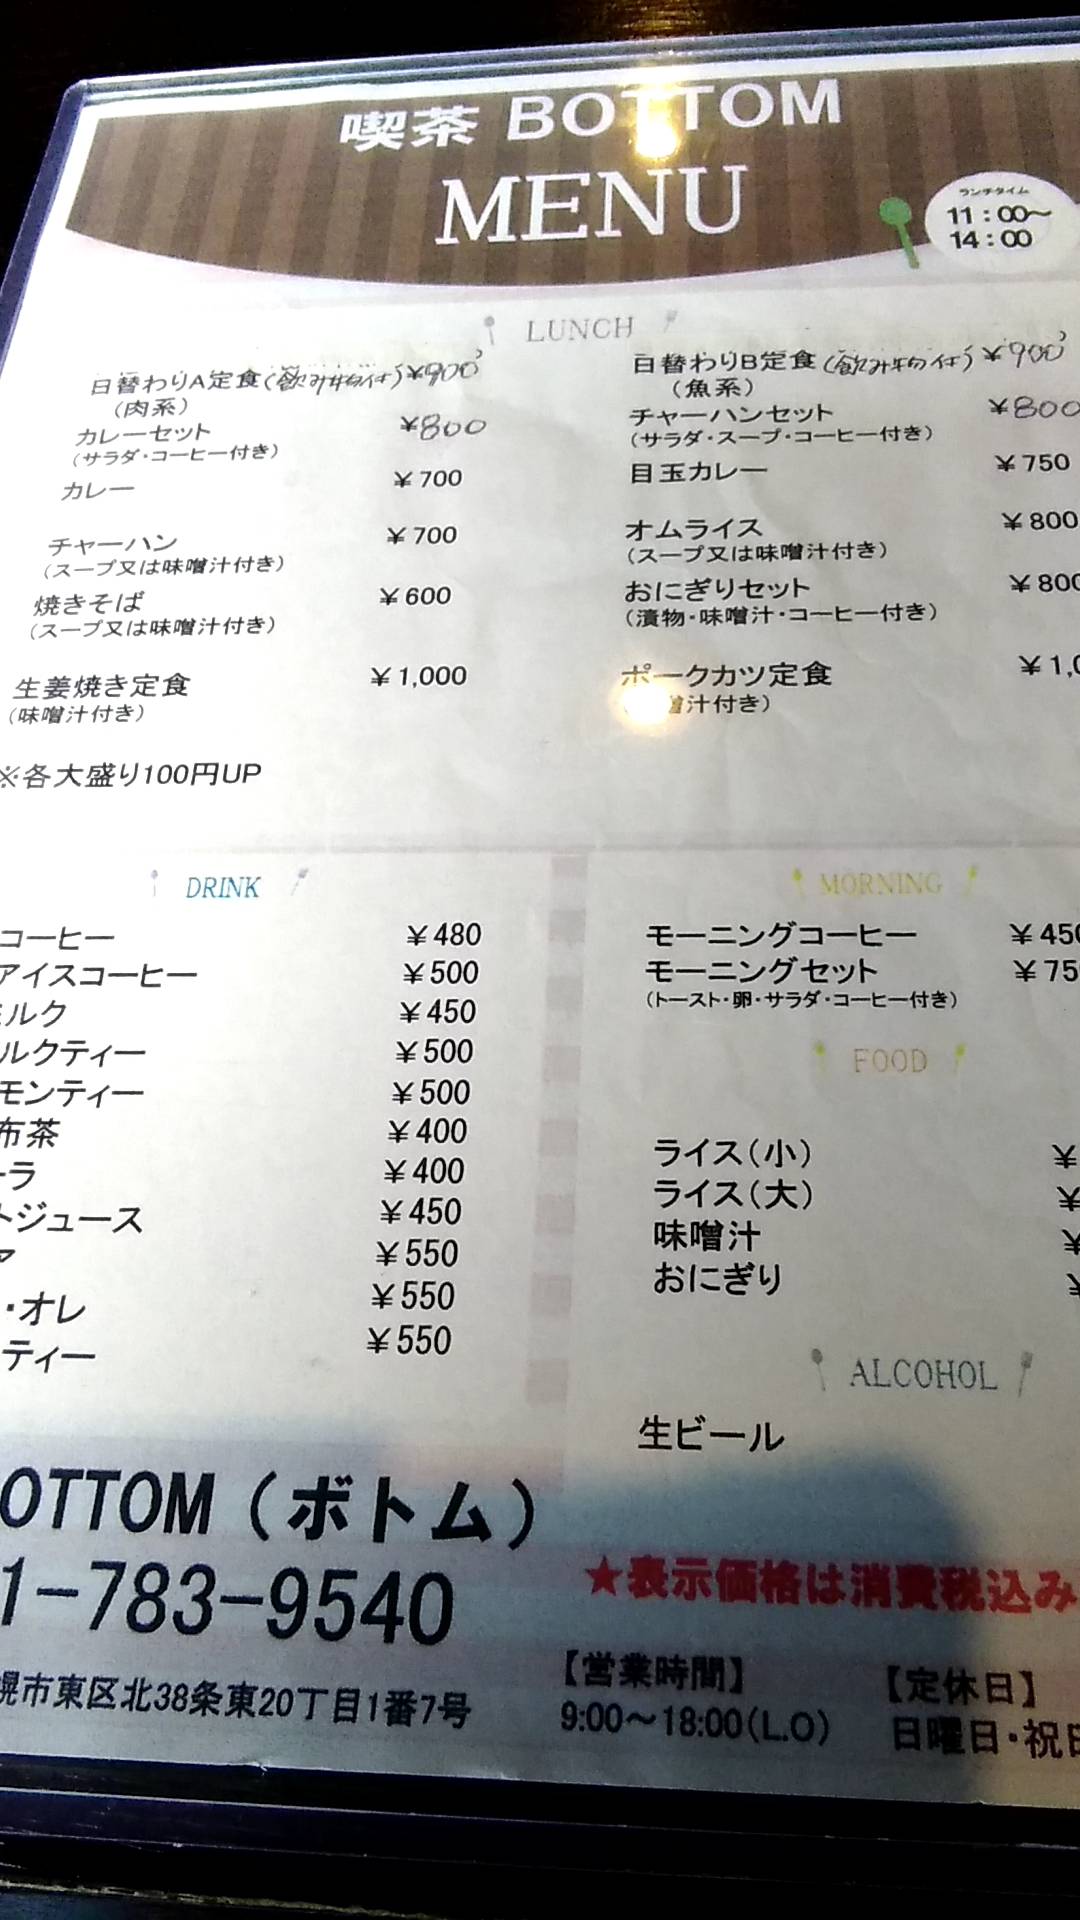 喫茶 BOTTOM
MENU
ランチタイム
11：00～
14：00
LUNCH
日替わりA定食(飲み物付) ¥900
（肉系）
カレーセット ¥800
（サラダ・コーヒー付き）
カレー ¥700
チャーハン ¥700
（スープ又は味噌汁付き）
焼きそば ¥600
（スープ又は味噌汁付き）
生姜焼き定食 ¥1,000
（味噌汁付き）
※各大盛り100円UP
日替わりB定食(飲み物付) ¥900
（魚系）
チャーハンセット ¥800
（サラダ・スープ・コーヒー付き）
目玉カレー ¥750
オムライス ¥800
（スープ又は味噌汁付き）
おにぎりセット ¥800
（漬物・味噌汁・コーヒー付き）
ポークカツ定食 ¥1,0
噌汁付き）
DRINK
コーヒー ¥480
アイスコーヒー ¥500
ミルク ¥450
ルクティー ¥500
モンティー ¥500
布茶 ¥400
ーラ ¥400
トジュース ¥450
ア ¥550
・オレ ¥550
ティー ¥550
MORNING
モーニングコーヒー ¥450
モーニングセット ¥75
（トースト・卵・サラダ・コーヒー付き）
FOOD
ライス（小） ¥
ライス（大） ¥
味噌汁 ¥
おにぎり ¥
ALCOHOL
生ビール
OTTOM（ボトム）
1-783-9540
幌市東区北38条東20丁目1番7号
★表示価格は消費税込み
【営業時間】
9:00～18:00(L.O)
【定休日】
日曜日・祝日